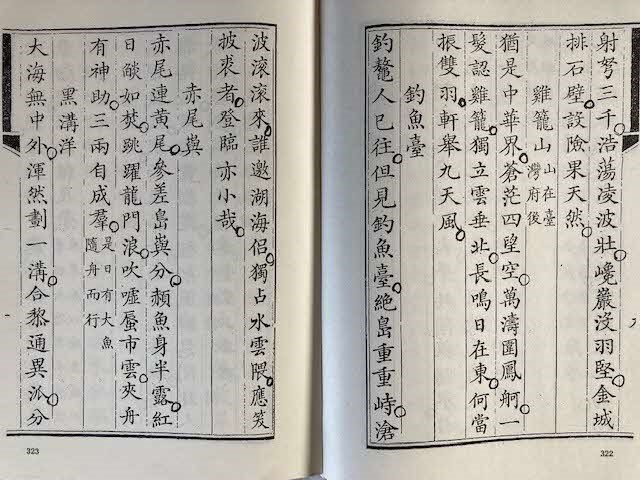 射弩三千浩蕩凌波壯巉巖沒羽堅金城
排石壁設險果天然
雞籠山山在臺灣府後
猶是中華界蒼茫四望空萬濤圍鳳舸一
髮認雞籠獨立雲垂北長鳴日在東何當
振雙羽軒舉九天風
釣魚臺
釣鼇人已往但見釣魚臺絕島重重峙滄
322
波滾滾來誰邀湖海侶獨占水雲隈應笈
披裘者登臨亦小哉
赤尾嶼
赤尾連黃尾參差島嶼分頳魚身半露紅
日燄如焚跳躍龍門浪吹噓蜃市雲夾舟
有神助三兩自成羣是日有大魚隨舟而行
黑溝洋
大海無中外渾然劃一溝合黎通異派分
323